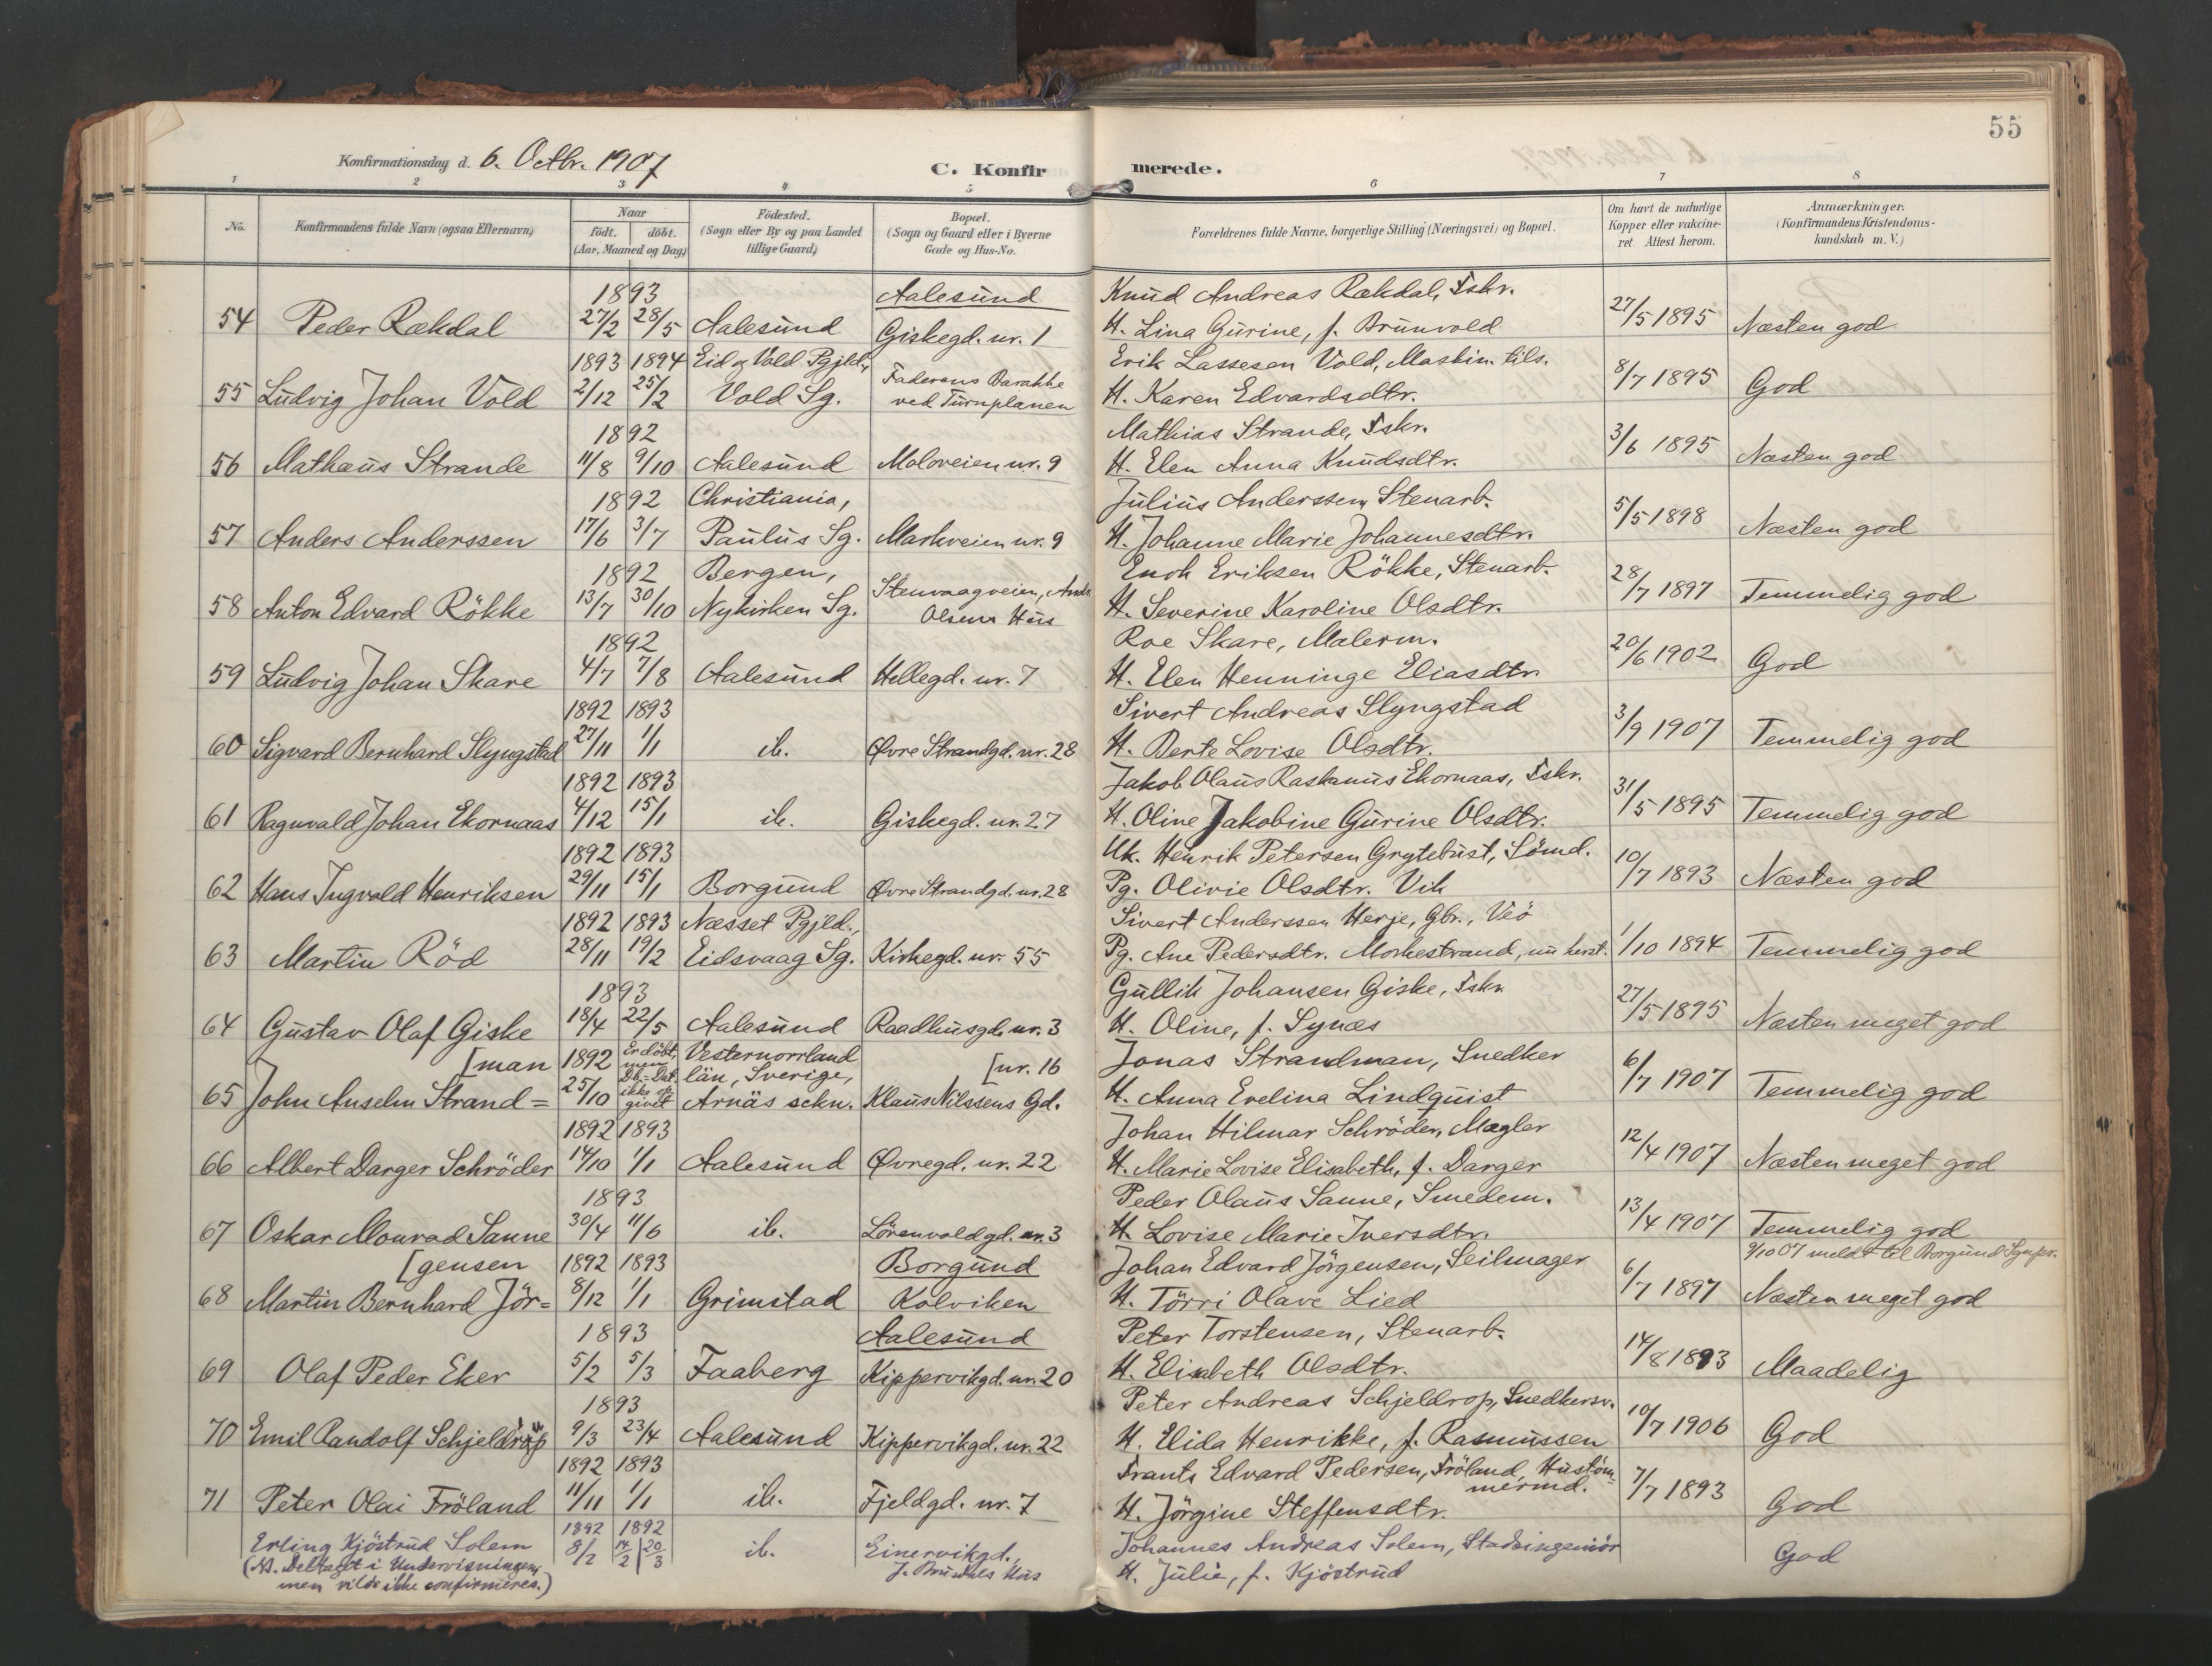 55
Konfirmationsdag d. 6. Octbr. 1907
C. Konfirmerede.
1 2 3 4 5 6 7 8
No. Konfirmandens fulde Navn (ogsaa Efternavn) Naar født. døbt. (Aar, Maaned og Dag) Födested. (Sogn eller By og paa Landet tillige Gaard) Bopæl. (Sogn og Gaard eller i Byerne Gade og Hus-No. Forældrenes fulde Navne, borgerlige Stilling (Næringsvei) og Bopæl. Om havt de naturlige Kopper eller vakcineret. Attest herom. Anmærkninger. (Konfirmandens Kristendomskundskab m. V.)
1893 Aalesund Knud Andreas Rækdal, Fskr.
54 Peder Rækdal 27/2 28/5 Aalesund Giskegd. nr. 1 H. Lina Gurine, f. Brunvold 27/5 1895 Næsten god
1893 1894 Eid og Vold Pgjld., Faderens Barakke Erik Lassesen Vold, Maskin. tils.
55 Ludvig Johan Vold 2/12 25/2 Vold Sg. ved Turnplanen H. Karen Edvardsdtr. 8/7 1895 God
1892 Mathias Strande, Fskr.
56 Mathæus Strande 11/8 9/10 Aalesund Moloveien nr. 9 H. Elen Anna Knudsdtr. 3/6 1895 Næsten god
1892 Christiania, Julius Anderssen, Stenarb.
57 Anders Anderssen 17/6 3/7 Paulus Sg. Markveien nr. 9 H. Johanne Marie Johannesdtr. 5/5 1898 Næsten god
1892 Bergen, Stenvaagveien, Andr. Enok Eriksen Rökke, Stenarb.
58 Anton Edvard Rökke 13/7 30/10 Nykirken Sg. Olsens Hus H. Severine Karoline Olsdtr. 28/7 1897 Temmelig god
1892 Roe Skare, Malerm.
59 Ludvig Johan Skare 4/7 7/8 Aalesund Hellegd. nr. 7 H. Elen Henninge Eliasdtr. 20/6 1902 God
1892 1893 Sivert Andreas Slyngstad
60 Sigvard Bernhard Slyngstad 27/11 1/1 ib. Øvre Strandgd. nr. 28 H. Berte Lovise Olsdtr. 3/9 1907 Temmelig god
1892 1893 Jakob Olaus Raskmus Ekornaas, Fskr.
61 Ragnvald Johan Ekornaas 4/12 15/1 ib. Giskegd. nr. 27 H. Oline Jakobine Gurine Olsdtr. 31/5 1895 Temmelig god
1892 1893 Uk. Henrik Petersen Grytebust, Sömd.
62 Hans Ingvald Henriksen 29/11 15/1 Borgund Øvre Strandgd. nr. 28 Pg. Olivie Olsdtr. Vik 10/7 1893 Næsten god
1892 1893 Næsset Pgjld., Sivert Anderssen Herje, Gbr., Veö
63 Martin Röd 28/11 19/2 Eidsvaag Sg. Kirkegd. nr. 55 Pg. Ane Pedersdtr. Morkestrand, nu herst. 1/10 1894 Temmelig god
1893 Gullik Johansen Giske, Fskr
64 Gustav Olaf Giske 18/4 22/5 Aalesund Raadhusgd. nr. 3 H. Oline, f. Synæs 27/5 1895 Næsten meget god
[man 1892 Er döbt, men Vesternorrland [nr. 16 Jonas Strandman, Snedker
65 John Anselm Strand= 25/10 Db.-Dat. ikke opgivet län, Sverige, Arnäs sckn. Klaus Nilssens Gd. H. Anna Evelina Lindquist 6/7 1907 Temmelig god
1892 1893 Johan Hilmar Schröder, Mægler
66 Albert Darger Schröder 14/10 1/1 Aalesund Øvregd. nr. 22 H. Marie Lovise Elisabeth, f. Darger 12/4 1907 Næsten meget god
1893 Peder Olaus Sanne, Smedem.
67 Oskar Monrad Sanne 30/4 11/6 ib. Lörenvoldgd. nr. 3 H. Lovise Marie Iversdtr. 13/4 1907 Temmelig god
[gensen 1892 1893 Borgund Johan Edvard Jörgensen, Seilmager 9/10 07 meldt til Borgund Sgnpr.
68 Martin Bernhard Jör= 8/12 1/1 Grimstad Kolviken H. Törri Olave Lied 6/7 1897 Næsten meget god
1893 Aalesund Peter Torstensen, Stenarb.
69 Olaf Peder Eker 5/2 5/3 Faaberg Kippervikgd. nr. 20 H. Elisabeth Olsdtr. 14/8 1893 Maadelig
1893 Peter Andreas Schjeldrop, Snedkersv.
70 Emil Randolf Schjeldrop 9/3 23/4 Aalesund Kippervikgd. nr. 22 H. Elida Henrikke, f. Rasmussen 10/7 1906 God
1892 1893 Frants Edvard Pedersen, Fröland, Hustömmermd.
71 Peter Olai Fröland 11/11 1/1 ib. Fjeldgd. nr. 7 H. Jörgine Steffensdtr. 7/7 1893 God
Erling Kjöstrud Solem 1892 1892 8/2 14/2 | 20/3 ib. Einervikgd., Johannes Andreas Solem, Stadsingeniör God
(N. Deltaget i Undervisningen, men vilde ikke confirmeres.) J. Brundals Hus H. Julie, f. Kjöstrud